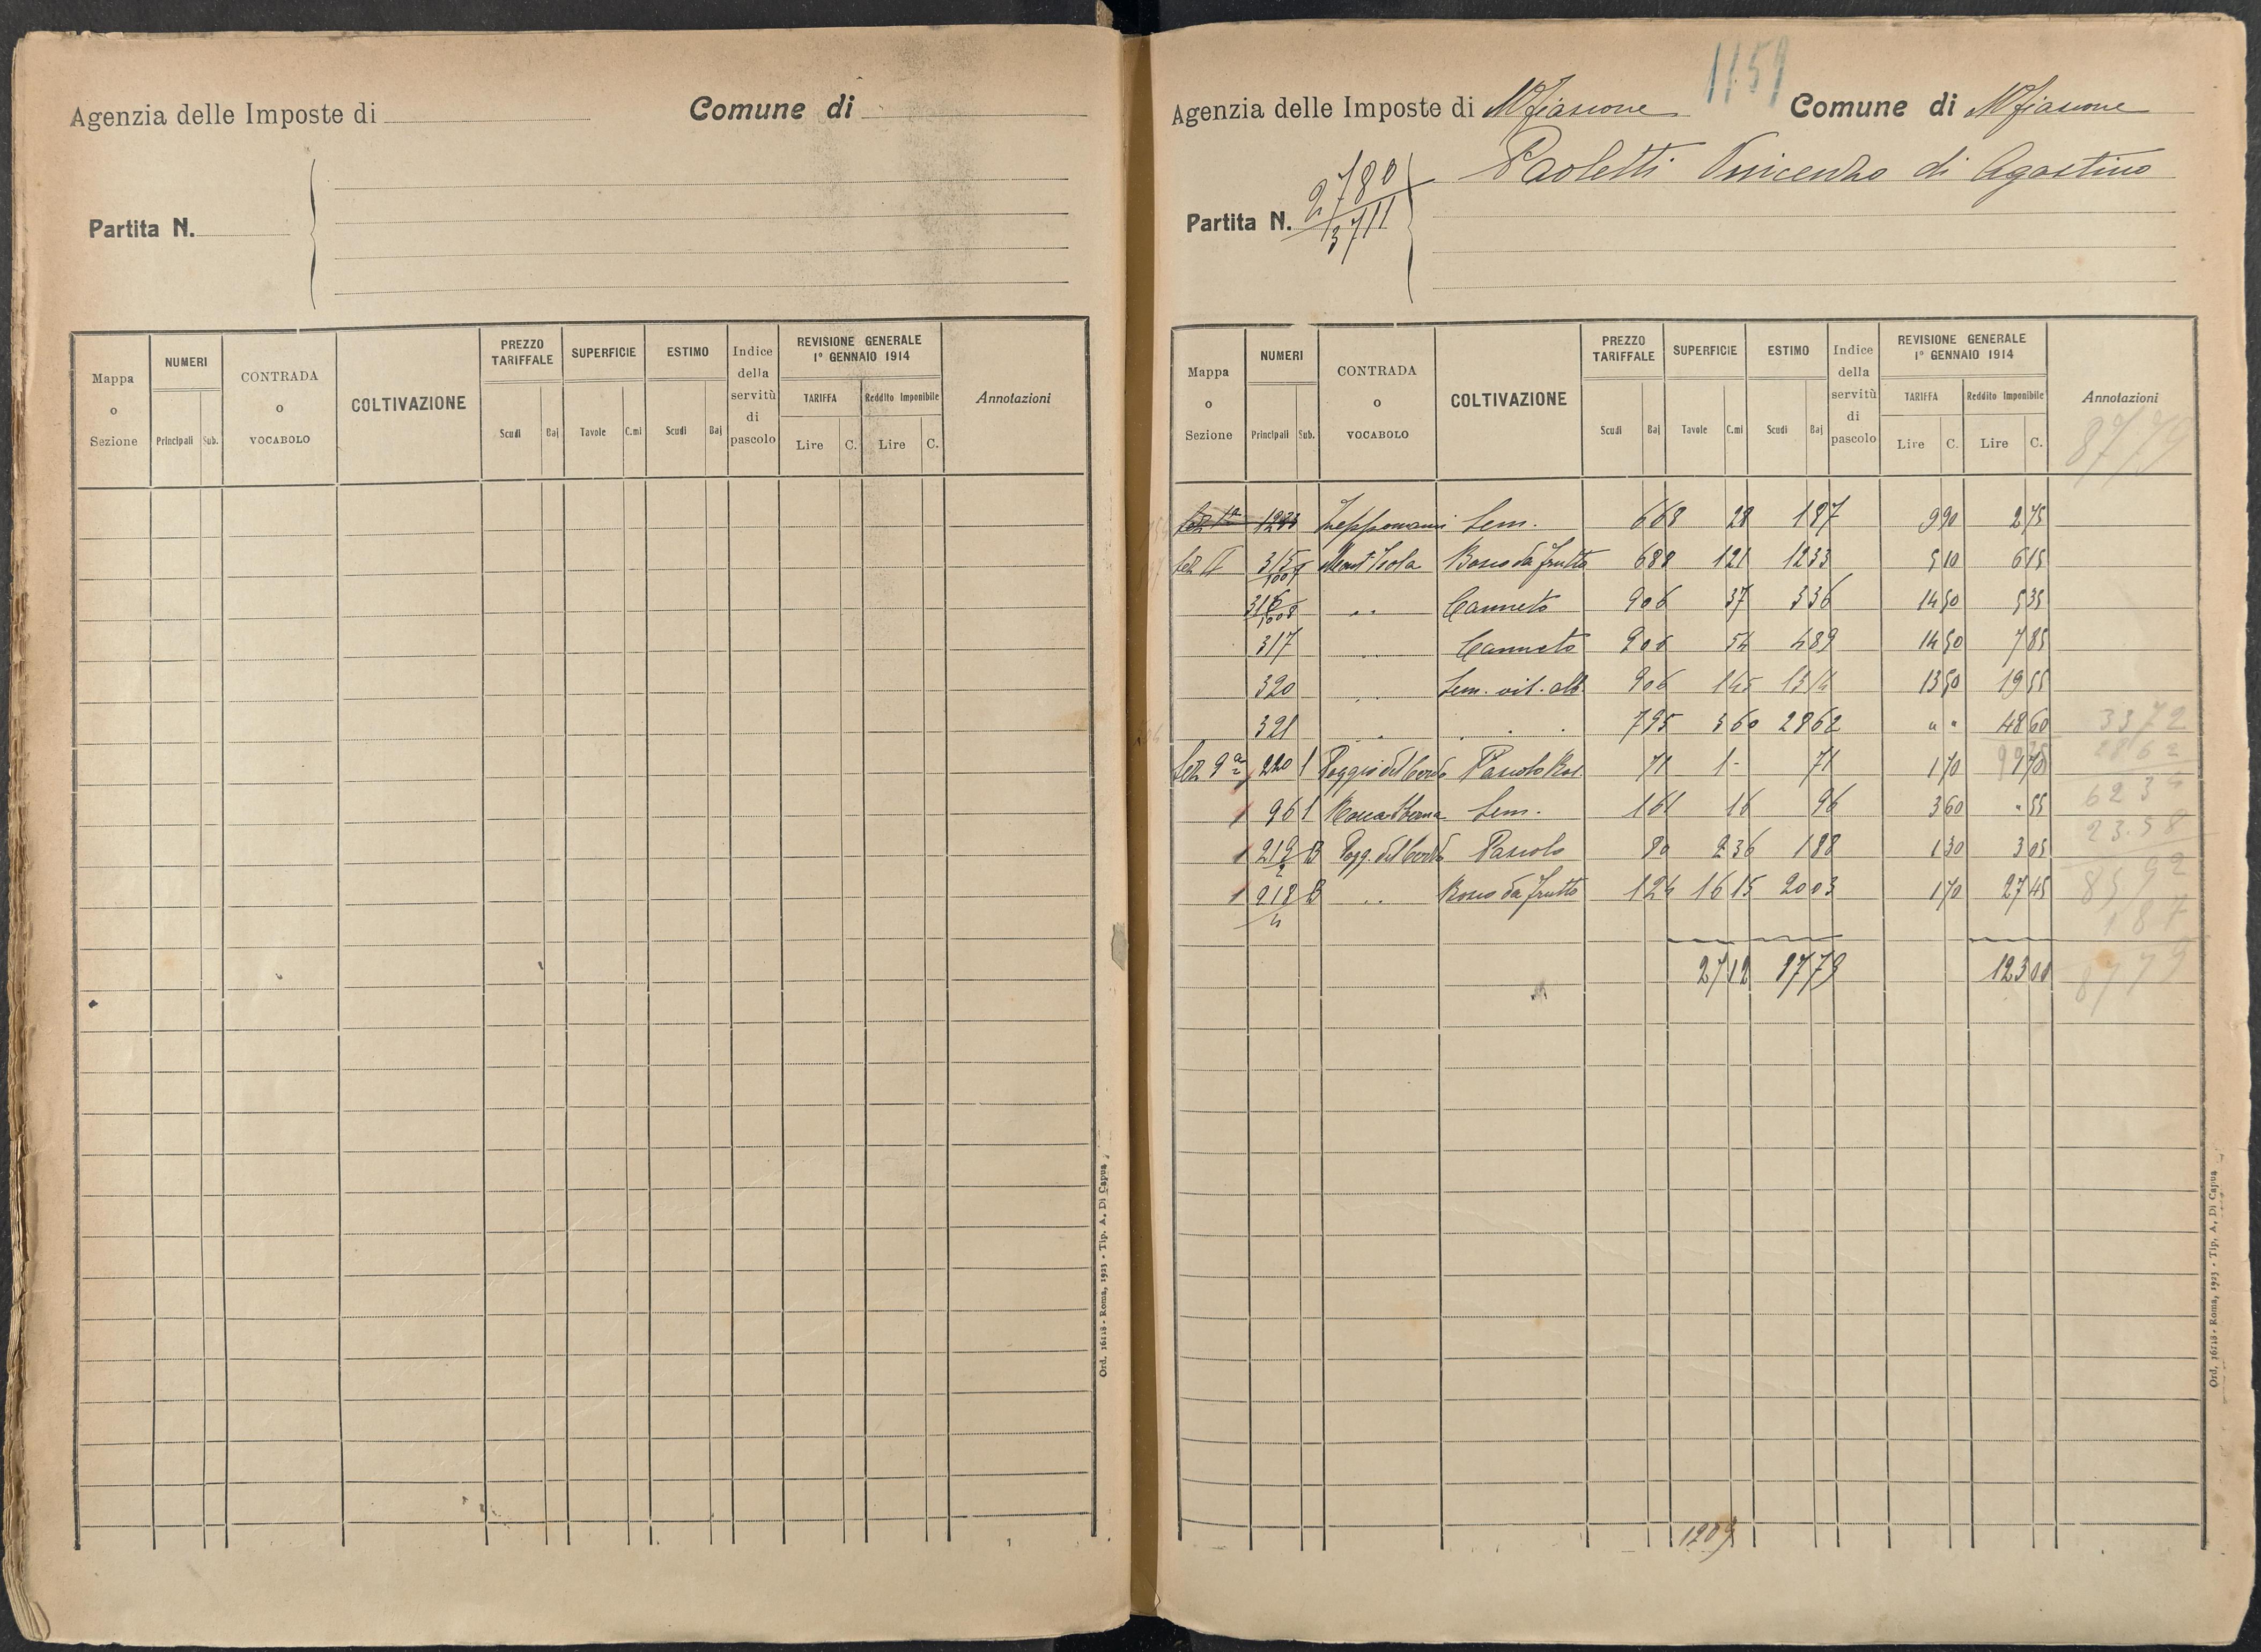 Agenzia delle Imposte di
Comune di
Partita N.
Mappa o Sezione
NUMERI
Principali Sub.
CONTRADA o VOCABOLO
COLTIVAZIONE
PREZZO TARIFFALE
Scudi Baj
SUPERFICIE
Tavole C.mi
ESTIMO
Scudi Baj
Indice della servitù di pascolo
REVISIONE GENERALE
1° GENNAIO 1914
TARIFFA
Lire C.
Reddito Imponibile
Lire C.
Annotazioni
Ord. 16118 - Roma, 1923 - Tip. A. Di Capua
1159
Agenzia delle Imposte di Mfiascone Comune di Mfiascone
Paoletti Vincenzo di Agostino
Partita N. 2780
3711
Mappa o Sezione
NUMERI
Principali Sub.
CONTRADA o VOCABOLO
COLTIVAZIONE
PREZZO TARIFFALE
Scudi Baj
SUPERFICIE
Tavole C.mi
ESTIMO
Scudi Baj
Indice della servitù di pascolo
REVISIONE GENERALE
1° GENNAIO 1914
TARIFFA
Lire C.
Reddito Imponibile
Lire C.
Annotazioni
8779
Sez 1a Sem. 668 28 187 9 90 2 75
Sez II 315 Mont Isola Bosco da frutto 688 121 1233 5 10 6 15
316 .. Canneto 906 37 336 14 50 5 35
317 .. Canneto 906 54 489 14 50 7 85
320 .. Sem. vit. alb. 906 145 1314 13 50 19 55
321 . . . . 795 360 2862 " " 48 60 3372
Sez 9a 220 1 Poggio del Cerro Pascolo 71 1 - 71 1 70 1 70 2862
961 Sem. 161 16 96 3 60 " 55 6234
219/2 B Pogg. del Cerro Pascolo 80 236 188 1 30 3 05 23.58
218/4 B .. Bosco da frutto 124 16 15 2003 1 70 27 45 8592
187
2712 8779 123 00 8779
1209
Ord. 16118 - Roma, 1923 - Tip. A. Di Capua